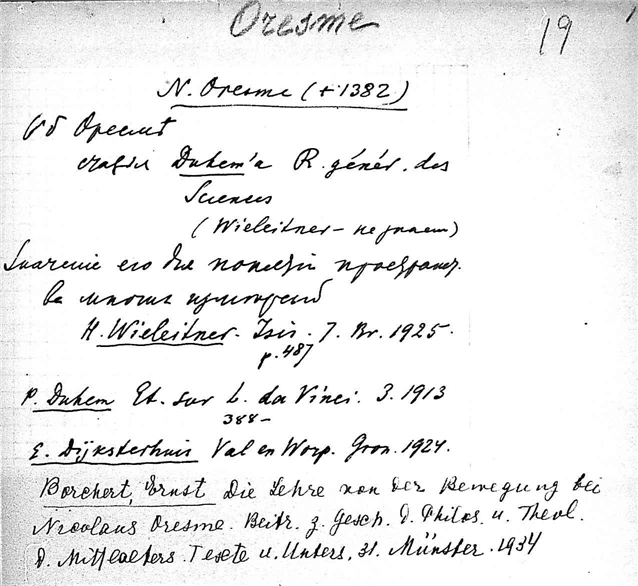 Oresme
19
N. Oresme (+1382)
Об Оресмѣ
статья Duhem'a R. génér. des
Sciences
(Wieleitner - не знает)
Значение его для понятiй пространс.
H. Wieleitner. Isis. 7. Br. 1925.
p. 487
P. Duhem Et. sur L. da Vinci. 3. 1913
388-
E. Dijksterhuis Val en Worp. Gron. 1924.
Borchert, Ernst Die Lehre von der Bewegung bei
Nicolaus Oresme. Beitr. z. Gesch. d. Philos. u. Theol.
d. Mittelalters. Texte u. Unters. 31. Münster. 1934